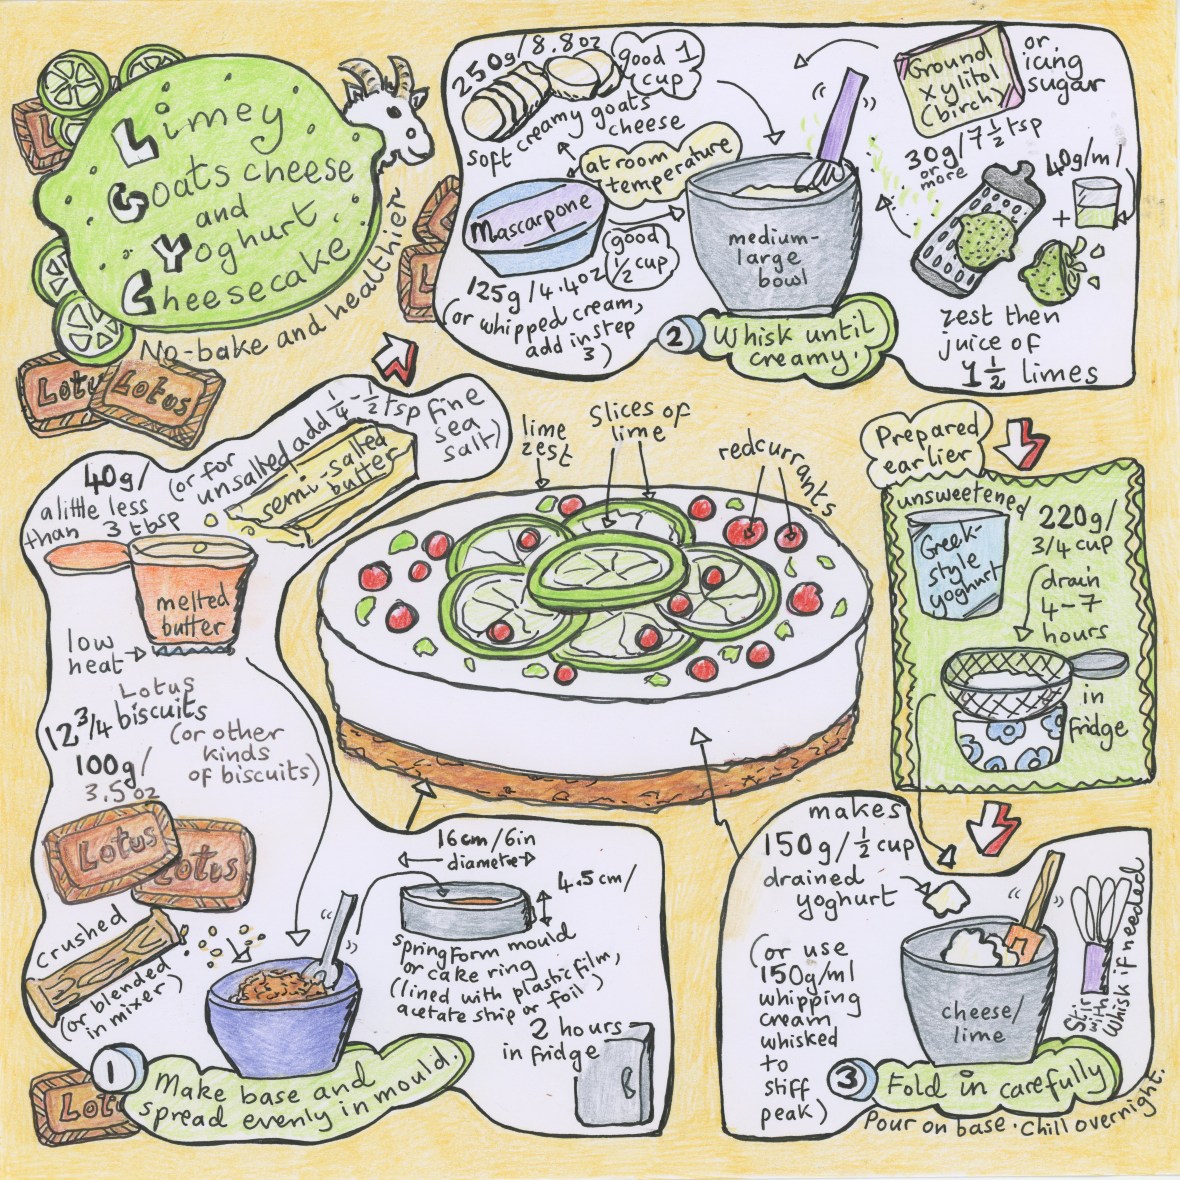 Limey
Goats cheese
and
Yoghurt
Cheesecake
No-bake and healthier
Lotus
Lotus
L
250g/8.8oz
good 1
cup
soft creamy goats
cheese
at room
temperature
Mascarpone
good
1/2 cup
125g/4.4oz
(or whipped cream,
add in step
3)
medium-
large
bowl
2
Whisk until
creamy.
Ground
xylitol
(birch)
or
icing
sugar
30g/7 1/2 tsp
or
more
40g/ml
+
zest then
juice of
1 1/2 limes
40g/
a little less
than 3 tbsp
(or for
unsalted add 1/4 - 1/2 tsp fine
sea
salt)
semi-salted
butter
melted
butter
low
heat
Lotus
12 3/4 biscuits
(or other
kinds
of biscuits)
100g/
3.5oz
Lotus
Lotus
crushed
(or blended
in mixer)
1
Make base and
spread evenly in mould.
Lotu
16cm/6in
diameter
4.5cm/
springform mould
or cake ring
(lined with plastic film,
acetate strip or foil)
2 hours
in fridge
B
lime
zest
slices of
lime
redcurrants
Prepared
earlier
unsweetened
Greek-
style
yoghurt
220g/
3/4 cup
drain
4-7
hours
in
fridge
makes
150g/1/2 cup
drained
yoghurt
(or use
150g/ml
whipping
cream
whisked
to
stiff
peak)
cheese/
lime
Stir
with
whisk if needed
3
Fold in carefully
Pour on base. Chill overnight.